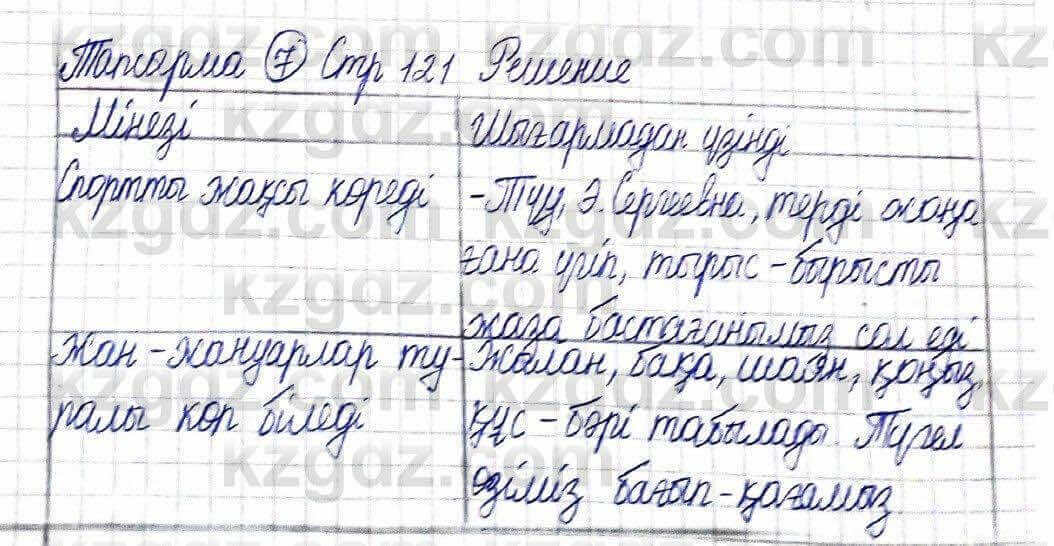 Тапсарма 7 Стр 121 Решение
Мінезі
Шығармадан үзінді
Спортты жақсы көреді
-Туу, Э.Сергеевна, терді жаңа
ғана үгіп, тырыс-бырысты
жаза бастағанымыз сол еді
Жан-жануарлар ту-
ралы көп біледі
Жылан, бақа, шаян, қоңыз,
құс - бәрі табылады. Түгел
өзіміз бағып-қағамыз.
kzgdz.com